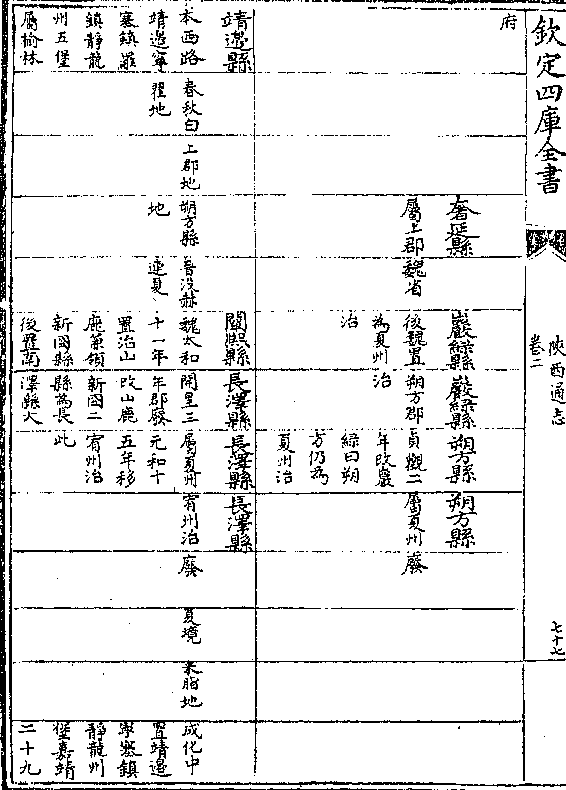 欽定四庫全書
陝西通志
卷二
七十七
府
奢延縣
屬上郡
魏省
巖綠縣
後魏置
為夏州
治
巖綠縣
朔方郡
治
朔方縣
貞觀二
年改巖
綠曰朔
方仍為
夏州治
朔方縣
屬夏州
廢
靖邊縣
本西路
靖邊寧
塞鎮羅
鎮靜龍
州五堡
屬榆林
春秋白
翟地
上郡地
朔方縣
地
晉沒赫
連夏
闡熙縣
魏太和
十一年
置治山
鹿兼領
新國縣
後置南
長澤縣
開皇三
年郡廢
改山鹿
新國二
縣為長
澤縣大
長澤縣
屬夏州
元和十
五年移
宥州治
此
長澤縣
宥州治
廢
夏境
米脂地
成化中
置靖邊
寧塞鎮
靜龍州
堡嘉靖
二十九